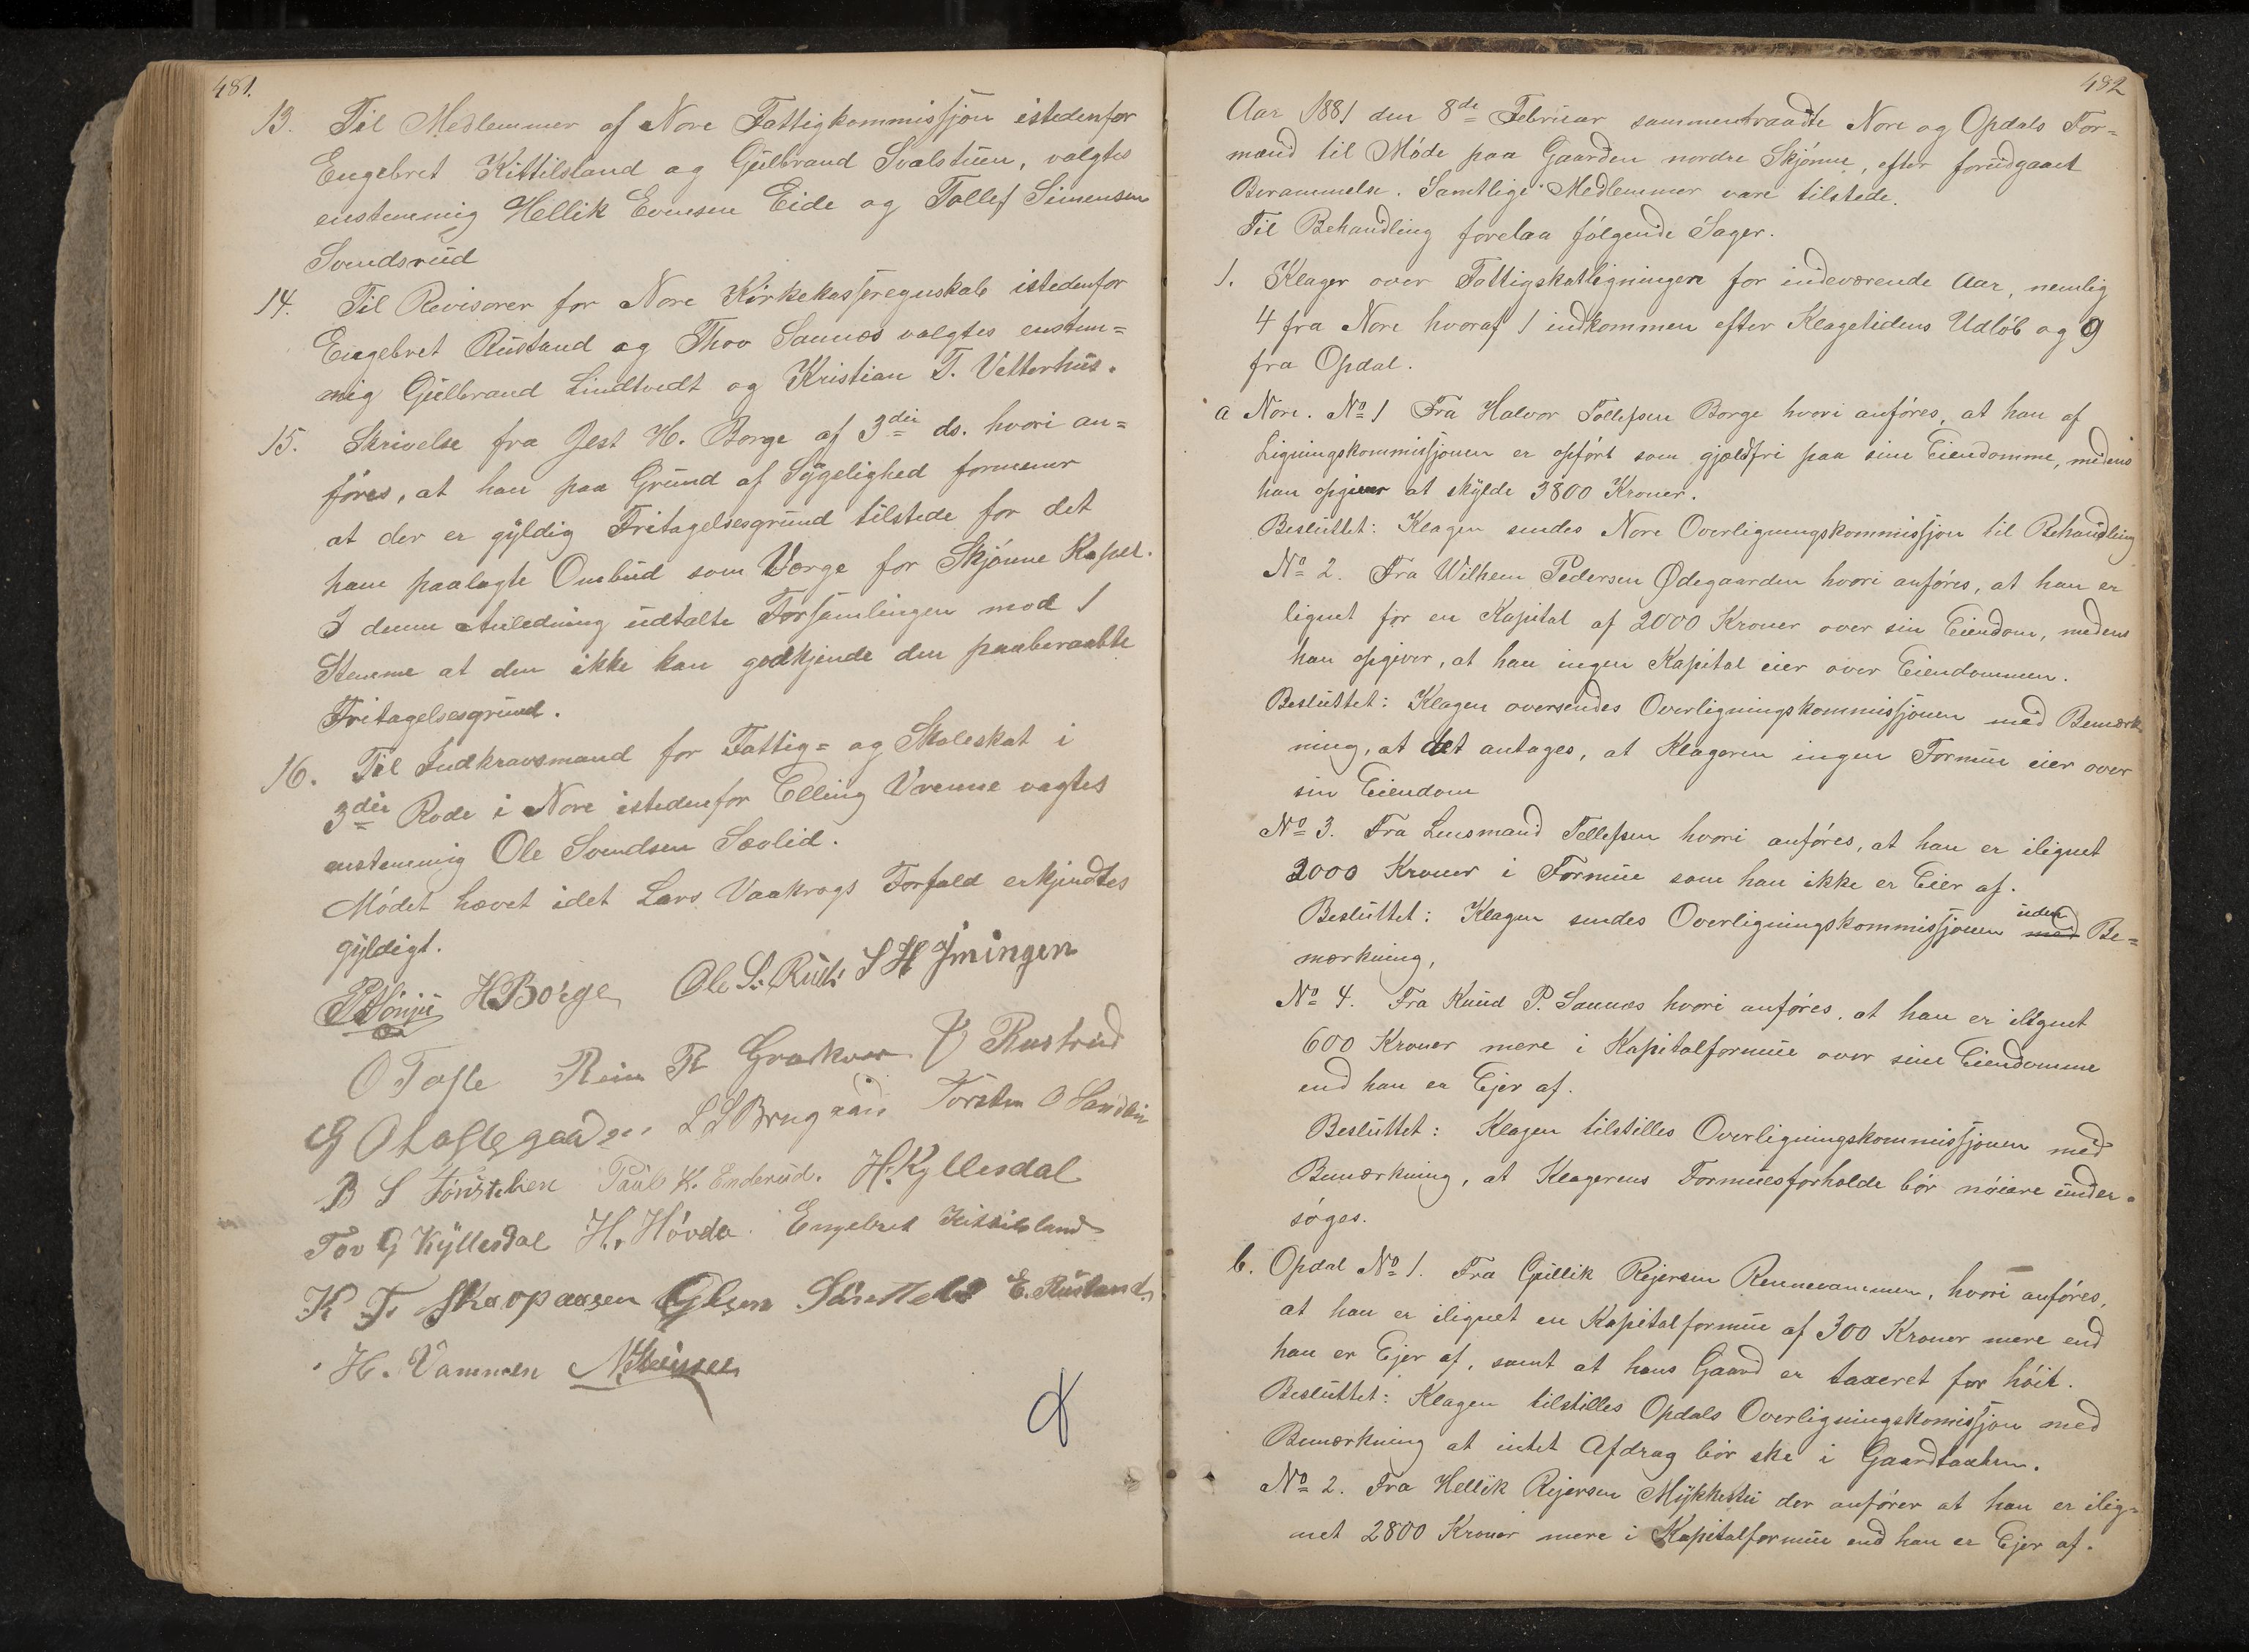 481.
13. Til Medlemmer af Nore Fattigkommissjon istedenfor
Engebret Kittilsland og Gulbrand Svalstuen, valgtes
enstemmig Hellik Evensen Eide og Tollef Simensen
Svendsrud
14. Til Revisorer for Nore Kirkekasseregnskab istedenfor
Engebret Rustand og Thov Sannæs valgtes enstem=
mig Gulbrand Lindtvedt og Kristian T. Vetterhus.
15. Skrivelse fra Gest H. Borge af 3die ds. hvori an=
føres, at han paa Grund af Sygelighed formener
at der er gyldig Fritagelsesgrund tilstede for det
ham paalagte Ombud som Værge for Skjønne Kapel.
I denne Anledning udtalte Forsamlingen mod 1
Stemme at den ikke kan godkjende den paaberaabte
Fritagelsesgrund.
16. Til Indkrævsmand for Fattig= og Skoleskat i
3die Rode i Nore istedenfor Elling Vrenne vagtes
enstemmig Ole Svendsen Sævlid.
Mødet hævet idet Lars Vaakrags Forfald erkjendtes
gyldigt.
H Borge Ole S. Rud S H Imingen
O Tofte Rein R Rustad
L L Brugaard Torsten O
B S Paul K. Enderud. H. Kyllesdal
Tov G Kyllesdal H. Hövda Engebret Kittilsland
K T. Skaopaasen E. Rustand
H. Vammen
482
Aar 1881 den 8de Februar sammentraadte Nore og Opdals For=
mænd til Møde paa Gaarden nordre Skjønne, efter forudgaaet
Berammelse. Samtlige Medlemmer vare tilstede.
Til Behandling forelaa følgende Sager.
1. Klager over Fattigskatligningen for indeværende Aar, nemlig
4 fra Nore hvoraf 1 indkommen efter Klagetidens Udløb og 9
fra Opdal.
a Nore. No 1 Fra Halvor Tollefsen Borge hvori anføres, at han af
Ligningskommissjonen er opført som gjældfri paa sine Eiendomme, medens
han opgiver at skylde 3800 Kroner.
Besluttet: Klagen sendes Nore Overligningskommissjon til Behandling
No 2. Fra Wilhem Pedersen Ødegaarden hvori anføres, at han er
lignet for en Kapital af 2000 Kroner over sin Eiendom, medens
han opgiver, at han ingen Kapital eier over Eiendommen.
Besluttet: Klagen oversendes Overligningskommissjonen med Bemærk-
ning, at det antages, at Klageren ingen Formue eier over
sin Eiendom
No 3. Fra Lensmand Tollefsen hvori anføres, at han er ilignet
2000 Kroner i Formue som han ikke er Eier af.
Besluttet: Klagen sendes Overligningskommissjonen med uden Be=
mærkning,
No 4. Fra Knud P. Sannæs hvori anføres, at han er ilignet
600 Kroner mere i Kapitalformue over sine Eiendomme
end han er Ejer af.
Besluttet: Klagen tilstilles Overligningskommissjonen med
Bemærkning, at Klagerens Formuesforholde bør nøiere under=
søges.
b. Opdal No 1. Fra Gullik Rejersen Rennevammen, hvori anføres,
at han er ilignet en Kapitalformue af 300 Kroner mere end
han er Ejer af, samt at hans Gaard er taxeret for høit.
Besluttet: Klagen tilstilles Opdals Overligningskomissjon med
Bemærkning at intet Afdrag bør ske i Gaardtaxten.
No 2. Fra Hellik Rejersen Mykkestu der anfører at han er ilig=
net 2800 Kroner mere i Kapitalformue end han er Ejer af.